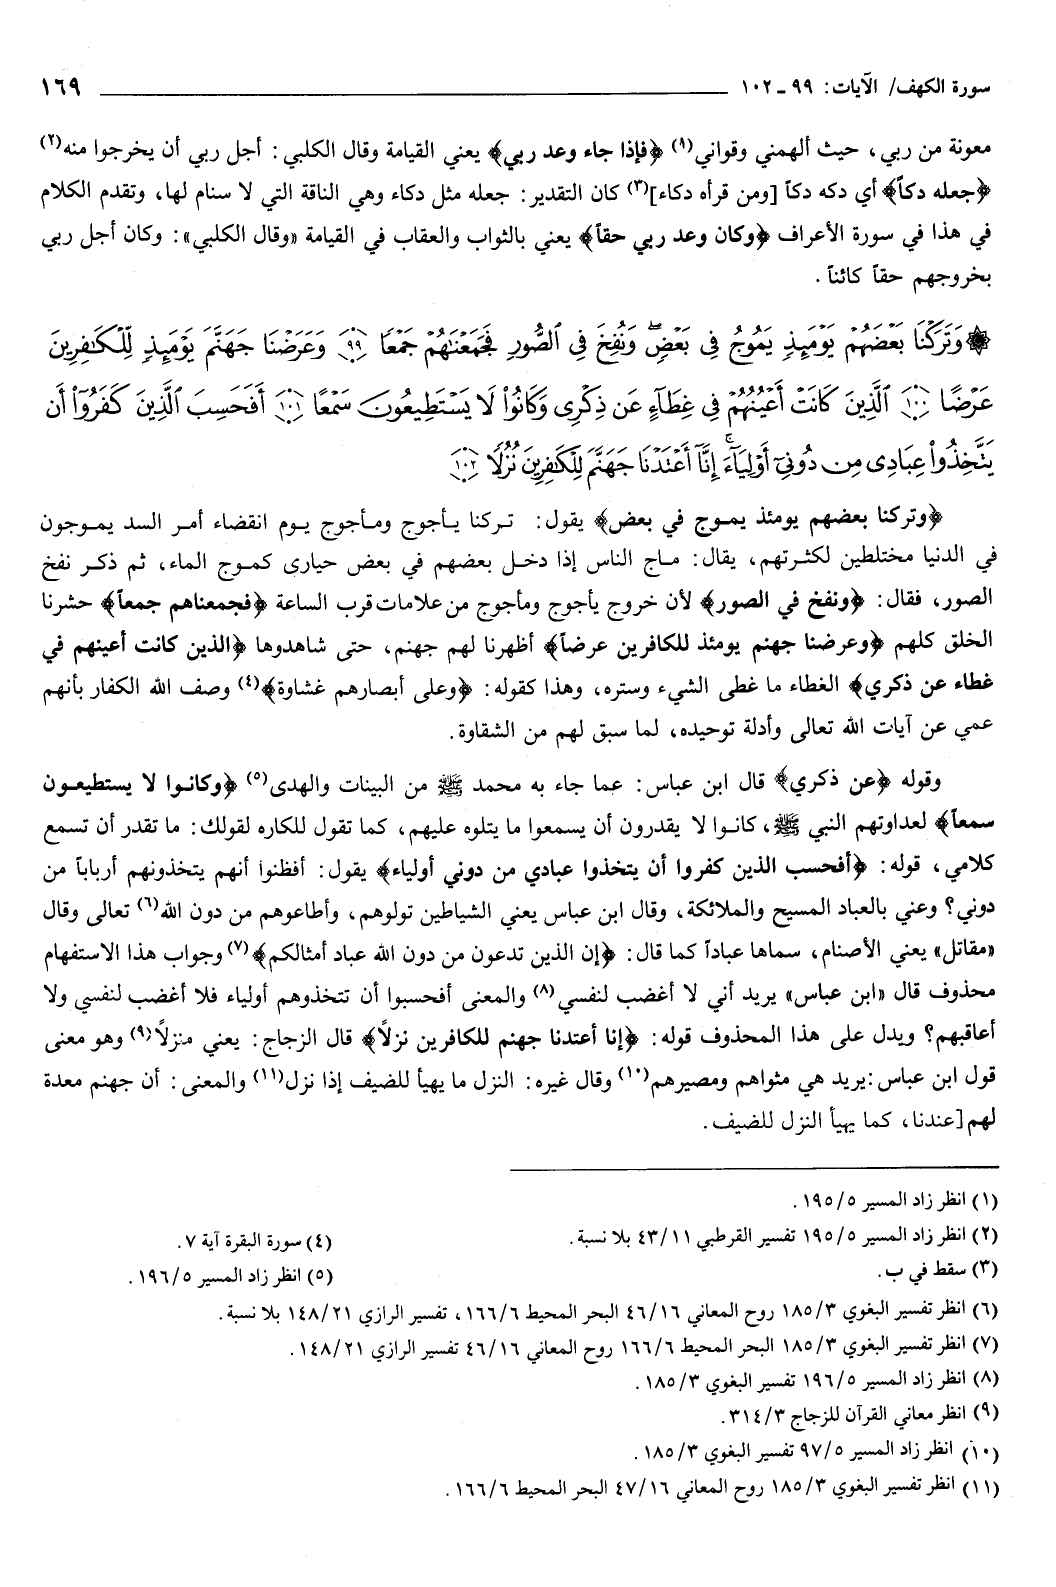 سورة الكهف/ الآيات: ٩٩ ـ ١٠٢ ١٦٩
معونة من ربي، حيث ألهمني وقواني(١) ﴿فإذا جاء وعد ربي﴾ يعني القيامة وقال الكلبي: أجل ربي أن يخرجوا منه(٢)
﴿جعله دكاً﴾ أي دكه دكاً [ومن قرأه دكاء](٣) كان التقدير: جعله مثل دكاء وهي الناقة التي لا سنام لها، وتقدم الكلام
في هذا في سورة الأعراف ﴿وكان وعد ربي حقاً﴾ يعني بالثواب والعقاب في القيامة «وقال الكلبي»: وكان أجل ربي
بخروجهم حقاً كائناً.
۞ وَتَرَكْنَا بَعْضَهُمْ يَوْمَئِذٍ يَمُوجُ فِي بَعْضٍ وَنُفِخَ فِي ٱلصُّورِ فَجَمَعْنَٰهُمْ جَمْعًا ﴿٩٩﴾ وَعَرَضْنَا جَهَنَّمَ يَوْمَئِذٍ لِّلْكَٰفِرِينَ
عَرْضًا ﴿١٠٠﴾ ٱلَّذِينَ كَانَتْ أَعْيُنُهُمْ فِي غِطَآءٍ عَن ذِكْرِي وَكَانُوا۟ لَا يَسْتَطِيعُونَ سَمْعًا ﴿١٠١﴾ أَفَحَسِبَ ٱلَّذِينَ كَفَرُوٓا۟ أَن
يَتَّخِذُوا۟ عِبَادِي مِن دُونِيٓ أَوْلِيَآءَ ۚ إِنَّآ أَعْتَدْنَا جَهَنَّمَ لِلْكَٰفِرِينَ نُزُلًا ﴿١٠٢﴾
﴿وتركنا بعضهم يومئذ يموج في بعض﴾ يقول: تركنا يأجوج ومأجوج يوم انقضاء أمر السد يموجون
في الدنيا مختلطين لكثرتهم، يقال: ماج الناس إذا دخل بعضهم في بعض حيارى كموج الماء، ثم ذكر نفخ
الصور، فقال: ﴿ونفخ في الصور﴾ لأن خروج يأجوج ومأجوج من علامات قرب الساعة ﴿فجمعناهم جمعاً﴾ حشرنا
الخلق كلهم ﴿وعرضنا جهنم يومئذ للكافرين عرضاً﴾ أظهرنا لهم جهنم، حتى شاهدوها ﴿الذين كانت أعينهم في
غطاء عن ذكري﴾ الغطاء ما غطى الشيء وستره، وهذا كقوله: ﴿وعلى أبصارهم غشاوة﴾(٤) وصف الله الكفار بأنهم
عمي عن آيات الله تعالى وأدلة توحيده، لما سبق لهم من الشقاوة.
وقوله ﴿عن ذكري﴾ قال ابن عباس: عما جاء به محمد ﷺ من البينات والهدى(٥) ﴿وكانوا لا يستطيعون
سمعاً﴾ لعداوتهم النبي ﷺ، كانوا لا يقدرون أن يسمعوا ما يتلوه عليهم، كما تقول للكاره لقولك: ما تقدر أن تسمع
كلامي، قوله: ﴿أفحسب الذين كفروا أن يتخذوا عبادي من دوني أولياء﴾ يقول: أفظنوا أنهم يتخذونهم أرباباً من
دوني؟ وعني بالعباد المسيح والملائكة، وقال ابن عباس يعني الشياطين تولوهم، وأطاعوهم من دون الله(٦) تعالى وقال
«مقاتل» يعني الأصنام، سماها عباداً كما قال: ﴿إن الذين تدعون من دون الله عباد أمثالكم﴾(٧) وجواب هذا الاستفهام
محذوف قال «ابن عباس» يريد أني لا أغضب لنفسي(٨) والمعنى أفحسبوا أن تتخذوهم أولياء فلا أغضب لنفسي ولا
أعاقبهم؟ ويدل على هذا المحذوف قوله: ﴿إنا أعتدنا جهنم للكافرين نزلاً﴾ قال الزجاج: يعني منزلاً(٩) وهو معنى
قول ابن عباس: يريد هي مثواهم ومصيرهم(١٠) وقال غيره: النزل ما يهيأ للضيف إذا نزل(١١) والمعنى: أن جهنم معدة
لهم[عندنا، كما يهيأ النزل للضيف.
(١) انظر زاد المسير ١٩٥/٥.
(٢) انظر زاد المسير ١٩٥/٥ تفسير القرطبي ٤٣/١١ بلا نسبة.
(٣) سقط في ب.
(٤) سورة البقرة آية ٧.
(٥) انظر زاد المسير ١٩٦/٥.
(٦) انظر تفسير البغوي ١٨٥/٣ روح المعاني ٤٦/١٦ البحر المحيط ١٦٦/٦، تفسير الرازي ١٤٨/٢١ بلا نسبة.
(٧) انظر تفسير البغوي ١٨٥/٣ البحر المحيط ١٦٦/٦ روح المعاني ٤٦/١٦ تفسير الرازي ١٤٨/٢١.
(٨) انظر زاد المسير ١٩٦/٥ تفسير البغوي ١٨٥/٣.
(٩) انظر معاني القرآن للزجاج ٣١٤/٣.
(١٠) انظر زاد المسير ٩٧/٥ تفسير البغوي ١٨٥/٣.
(١١) انظر تفسير البغوي ١٨٥/٣ روح المعاني ٤٧/١٦ البحر المحيط ١٦٦/٦.